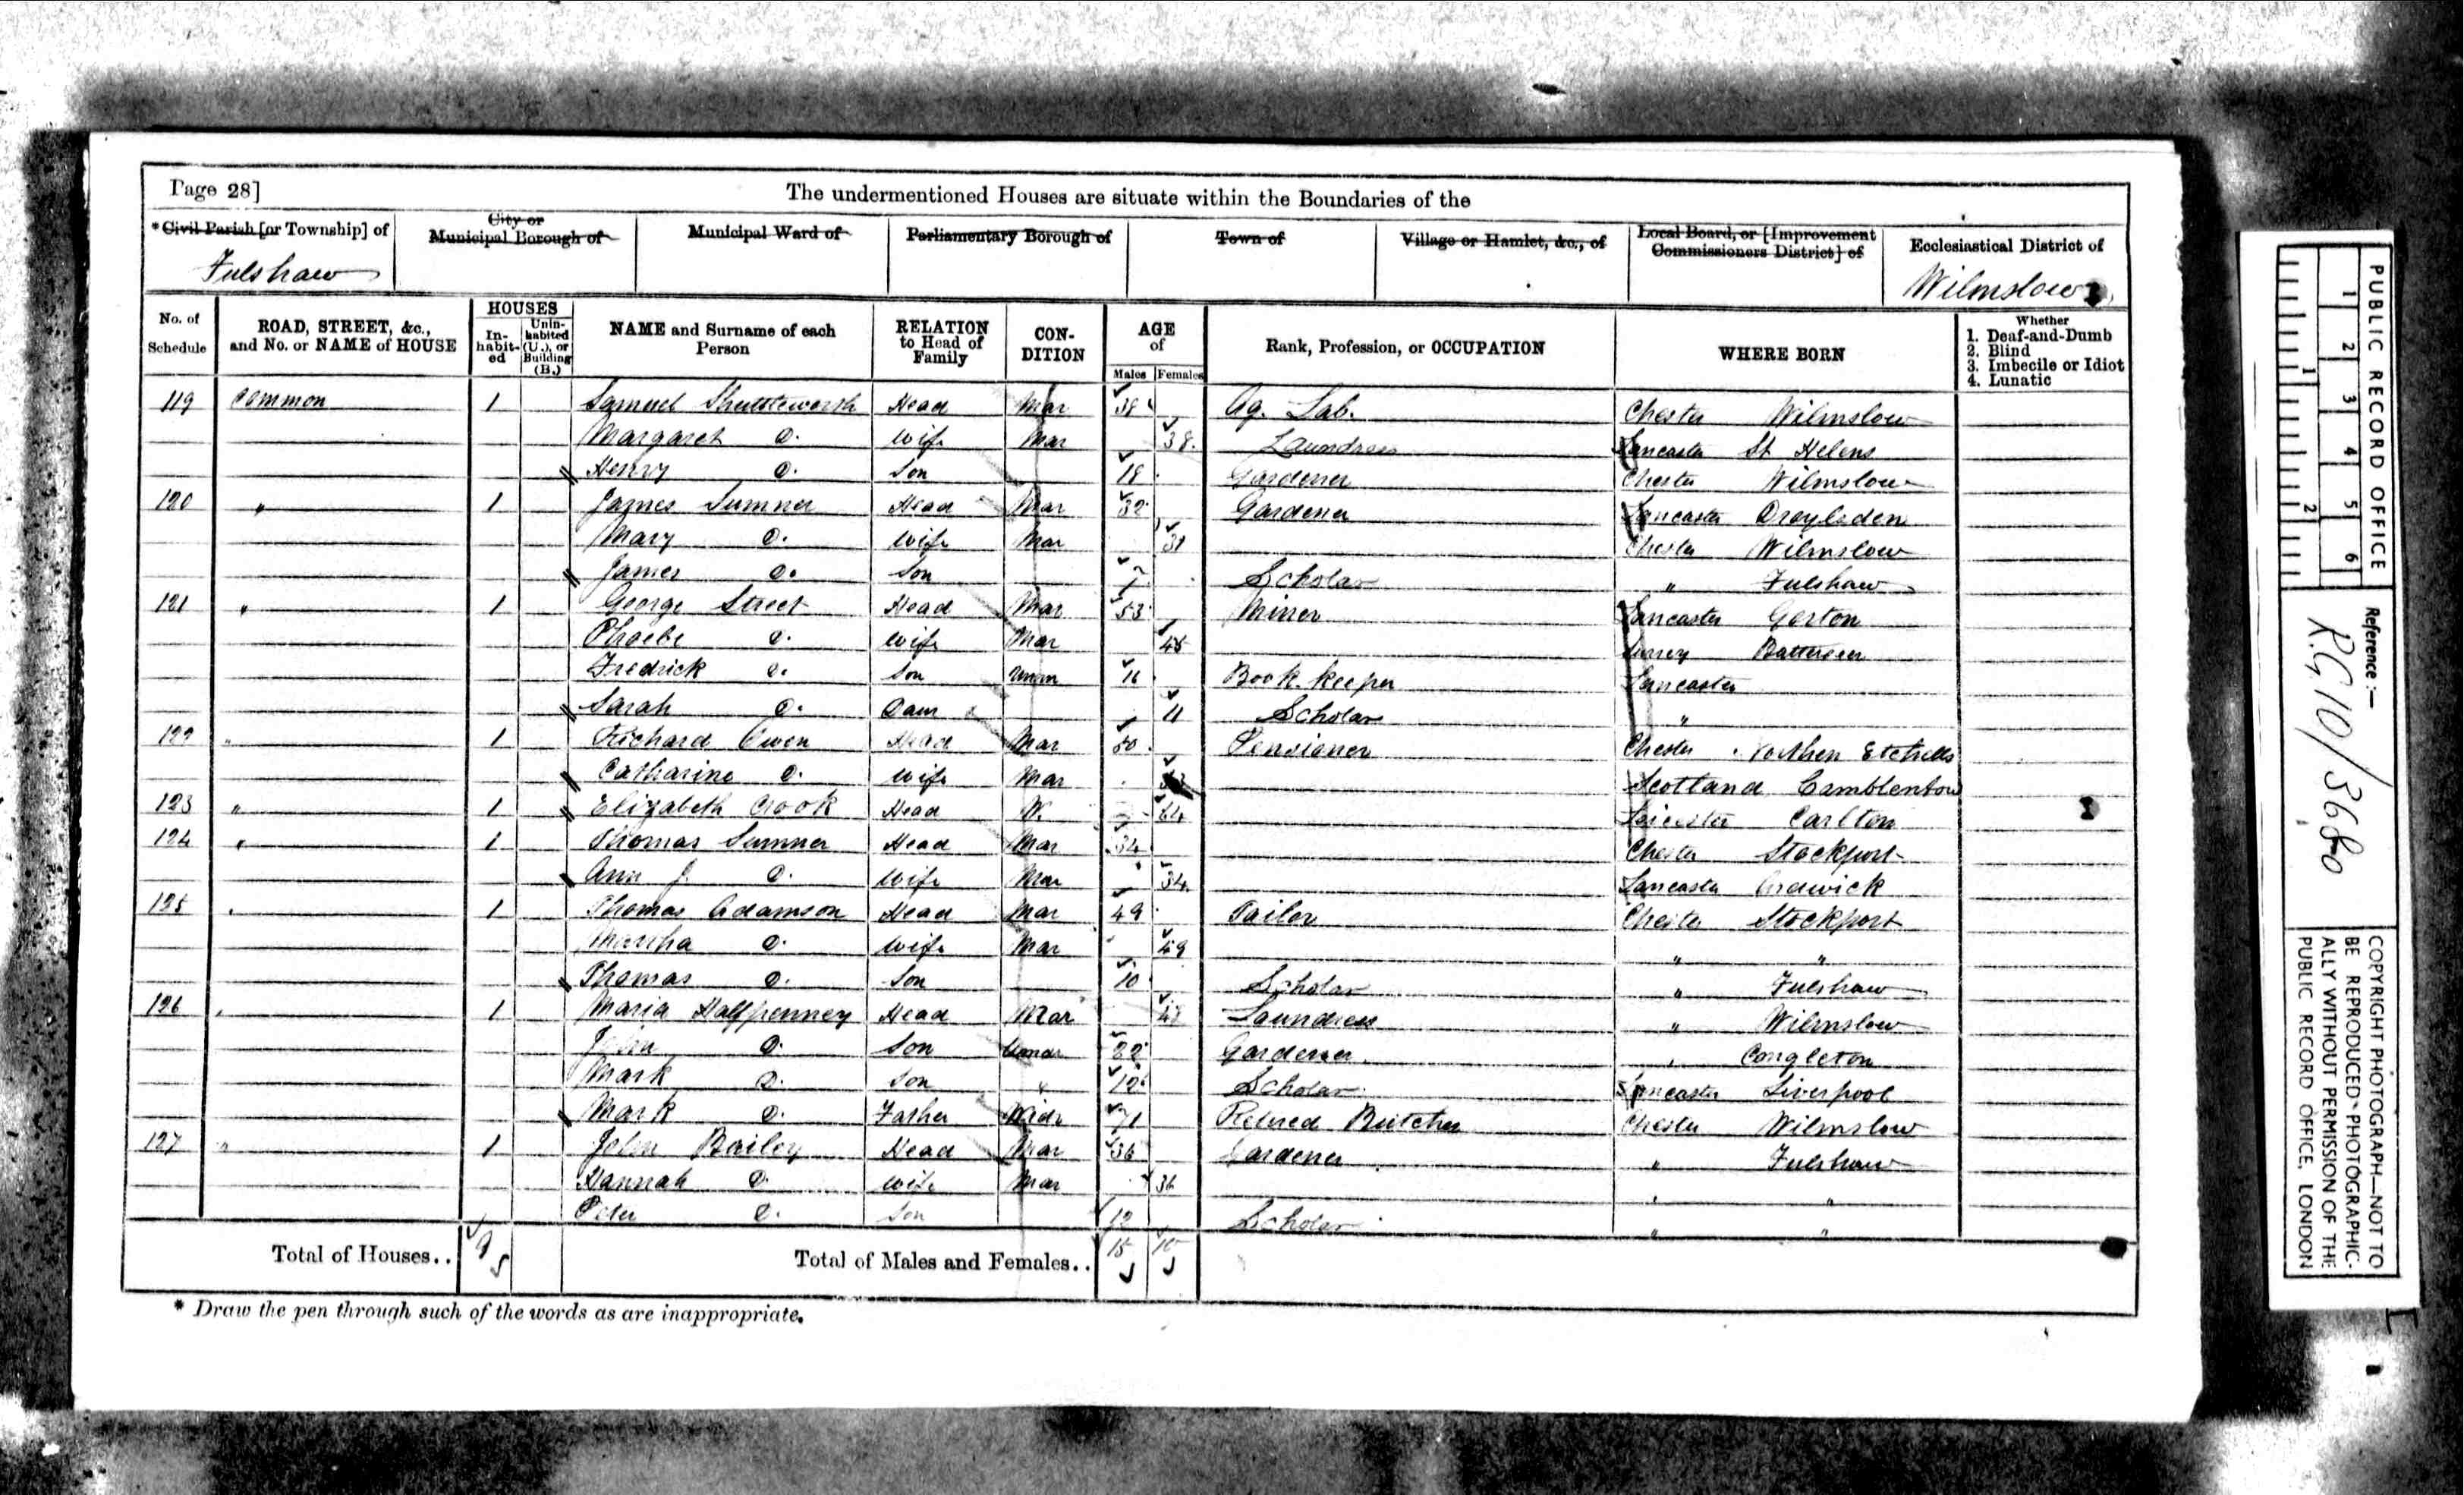 Page 28]
The undermentioned Houses are situate within the Boundaries of the
*Civil Parish [or Township] of
City or Municipal Borough of
Municipal Ward of
Parliamentary Borough of
Town of
Village or Hamlet, &c., of
Local Board, or [Improvement Commissioners District] of
Ecclesiastical District of
Fulshaw
Wilmslow
No. of Schedule
ROAD, STREET, &c., and No. or NAME of HOUSE
HOUSES
In-habit-ed
Unin-habited (U.), or Building (B.)
NAME and Surname of each Person
RELATION to Head of Family
CON-DITION
AGE of
Males Females
Rank, Profession, or OCCUPATION
WHERE BORN
Whether
1. Deaf-and-Dumb
2. Blind
3. Imbecile or Idiot
4. Lunatic
119 Common 1 Samuel Shuttleworth Head Mar 38 Ag. Lab. Chester Wilmslow
Margaret Do. Wife Mar 38 Laundress Lancaster St Helens
Henry Do. Son 18 Gardener Chester Wilmslow
120 " 1 James Sumner Head Mar 32 Gardener Lancaster Droylsden
Mary Do. Wife Mar 31 Chester Wilmslow
James Do. Son Scholar " Fulshaw
121 " 1 George Street Head Mar 53 Miner Lancaster Gorton
Phoebe Do. Wife Mar 45 Surrey Battersea
Fredrick Do. Son Unm 16 Book keeper Lancaster
Sarah Do. Daur 11 Scholar "
122 " 1 Richard Owen Head Mar 50 Pensioner Chester Northen Etchells
Catharine Do. Wife Mar Scotland Camblentow
123 " 1 Elizabeth Crook Head W. 64 Leicester Carlton
124 " 1 Thomas Sumner Head Mar 34 Chester Stockport
Ann J. Do. Wife Mar 34 Lancaster Ardwick
125 " 1 Thomas Adamson Head Mar 49 Tailor Chester Stockport
Martha Do. Wife Mar 49 " "
Thomas Do. Son 10 Scholar " Fulshaw
126 " 1 Maria Halfpenney Head Mar 47 Laundress " Wilmslow
John Do. Son 22 Gardener " Congleton
Mark Do. Son " 12 Scholar Lancaster Liverpool
Mark Do. Father Widr 71 Retired Butcher Chester Wilmslow
127 " 1 John Bailey Head Mar 36 Gardener " Fulshaw
Hannah Do. Wife Mar 36 " "
Peter Do. Son 12 Scholar " "
Total of Houses.. 9
Total of Males and Females.. 15 10
* Draw the pen through such of the words as are inappropriate.
PUBLIC RECORD OFFICE
1 2 3 4 5 6
1 2
Reference :—
RG 10/3680
COPYRIGHT PHOTOGRAPH—NOT TO
BE REPRODUCED PHOTOGRAPHIC-
ALLY WITHOUT PERMISSION OF THE
PUBLIC RECORD OFFICE, LONDON